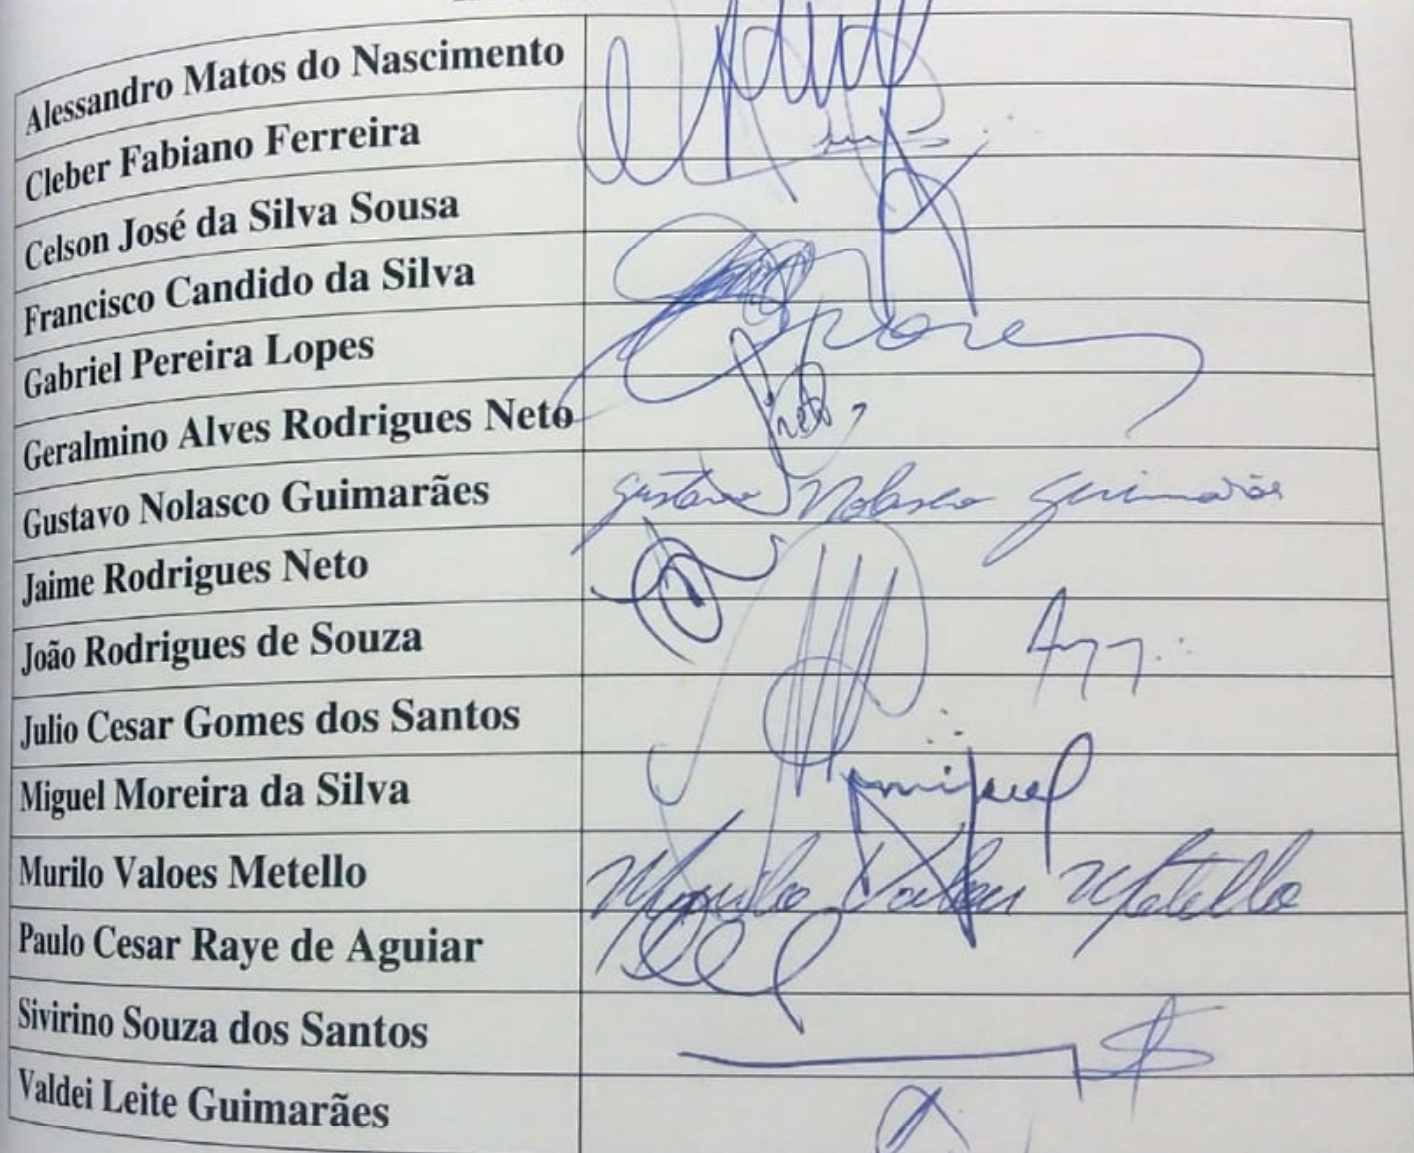 Alessandro Matos do Nascimento
Cleber Fabiano Ferreira
Celson José da Silva Sousa
Francisco Candido da Silva
Gabriel Pereira Lopes
Geralmino Alves Rodrigues Neto
neto
Gustavo Nolasco Guimarães Gustavo Nolasco Guimarães
Jaime Rodrigues Neto
João Rodrigues de Souza
Julio Cesar Gomes dos Santos
Miguel Moreira da Silva miguel
Murilo Valoes Metello Murilo Valoes Metello
Paulo Cesar Raye de Aguiar
Sivirino Souza dos Santos
Valdei Leite Guimarães